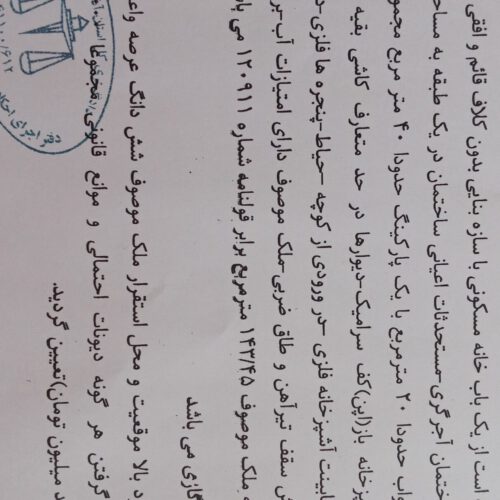 است از یک باب خانه مسکونی با سازه بنایی بدون کلاف قائم و افقی
ختمان آجرگری-مستحدثات اعیانی ساختمان در یک طبقه به مساح
واب حدودا ۲۰ مترمربع با یک پارکینگ حدودا ۴۰ متر مربع مجمو
پزخانه باز(اپن)کف سرامیک-دیوارها در حد متعارف کاشی بقیه
ابینت آشپزخانه فلزی-در ورودی از کوچه-حیاط-پنجره ها فلزی-
ش سقف تیرآهن و طاق ضربی-ملک موصوف دارای امتیازات آب-بر
ملک موصوف ۱۴۳/۴۵ مترمربع برابر قولنامه شماره ۱۲۰۹۱۱ می با
گازی می باشد
د بالا موقعیت و محل استقرار ملک موصوف شش دانگ عرصه واع
گرفتن هر گونه دیونات احتمالی و موانع قانونی مجموعا
د میلیون تومان)تعیین گردید.
دفتر اجرای احکام